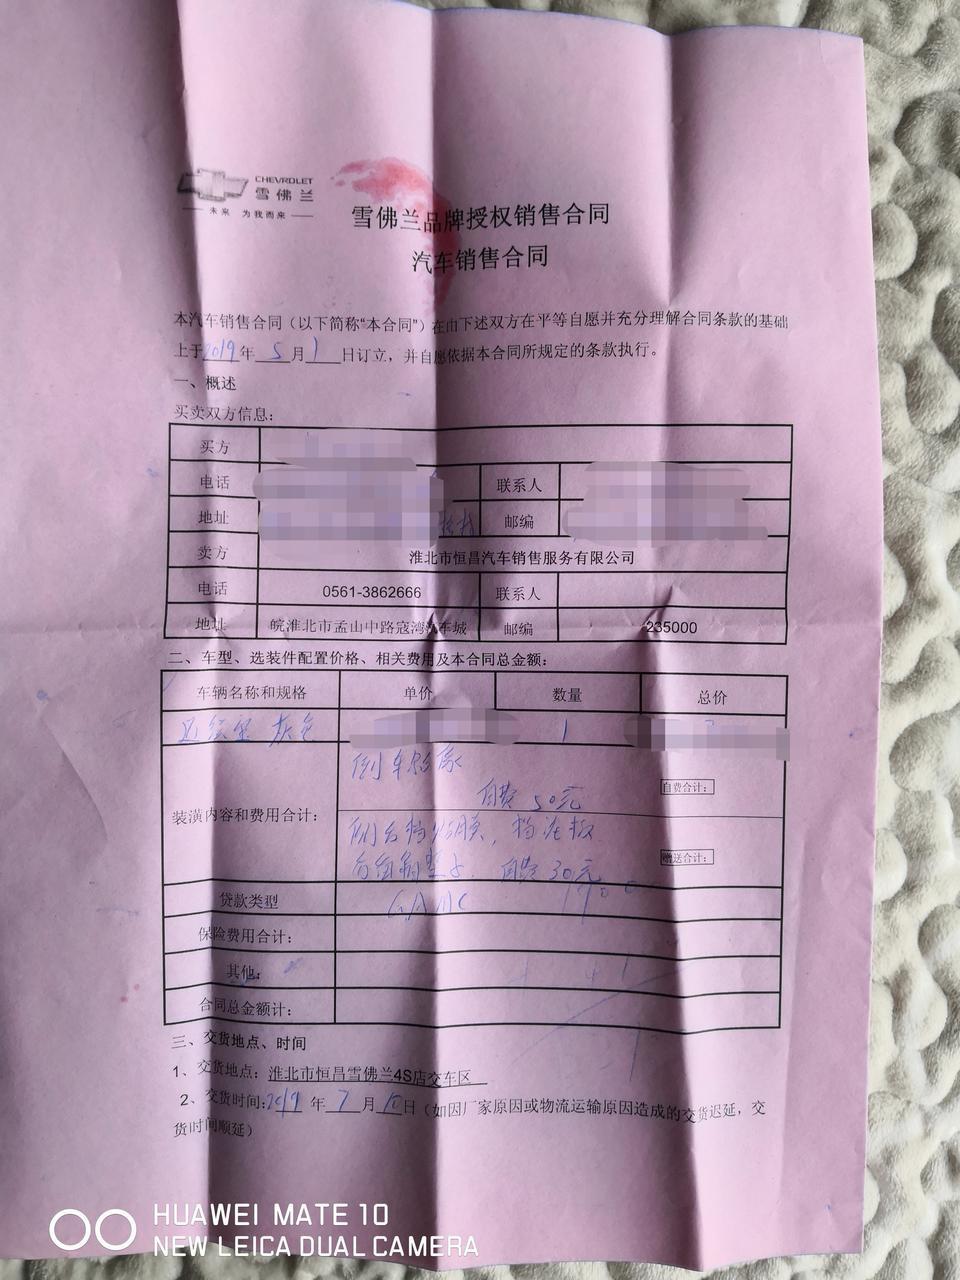 CHEVROLET
雪佛兰
未来 为我而来
雪佛兰品牌授权销售合同
汽车销售合同
本汽车销售合同（以下简称“本合同”）在由下述双方在平等自愿并充分理解合同条款的基础
上于2019年5月1日订立，并自愿依据本合同所规定的条款执行。
一、概述
买卖双方信息：
买方
电话 联系人
地址 邮编
卖方 淮北市恒昌汽车销售服务有限公司
电话 0561-3862666 联系人
地址 皖淮北市孟山中路寇湾汽车城 邮编 235000
二、车型、选装件配置价格、相关费用及本合同总金额：
车辆名称和规格 单价 数量 总价
灰色 1
倒车影像
自费 50元 自费合计：
装潢内容和费用合计：
赠送合计：
自费 30元
贷款类型 GMAC
保险费用合计：
其他：
合同总金额计：
三、交货地点、时间
1、交货地点：淮北市恒昌雪佛兰4S店交车区
2、交货时间：2019年7月10日（如因厂家原因或物流运输原因造成的交货迟延，交
货时间顺延）
HUAWEI MATE 10
NEW LEICA DUAL CAMERA